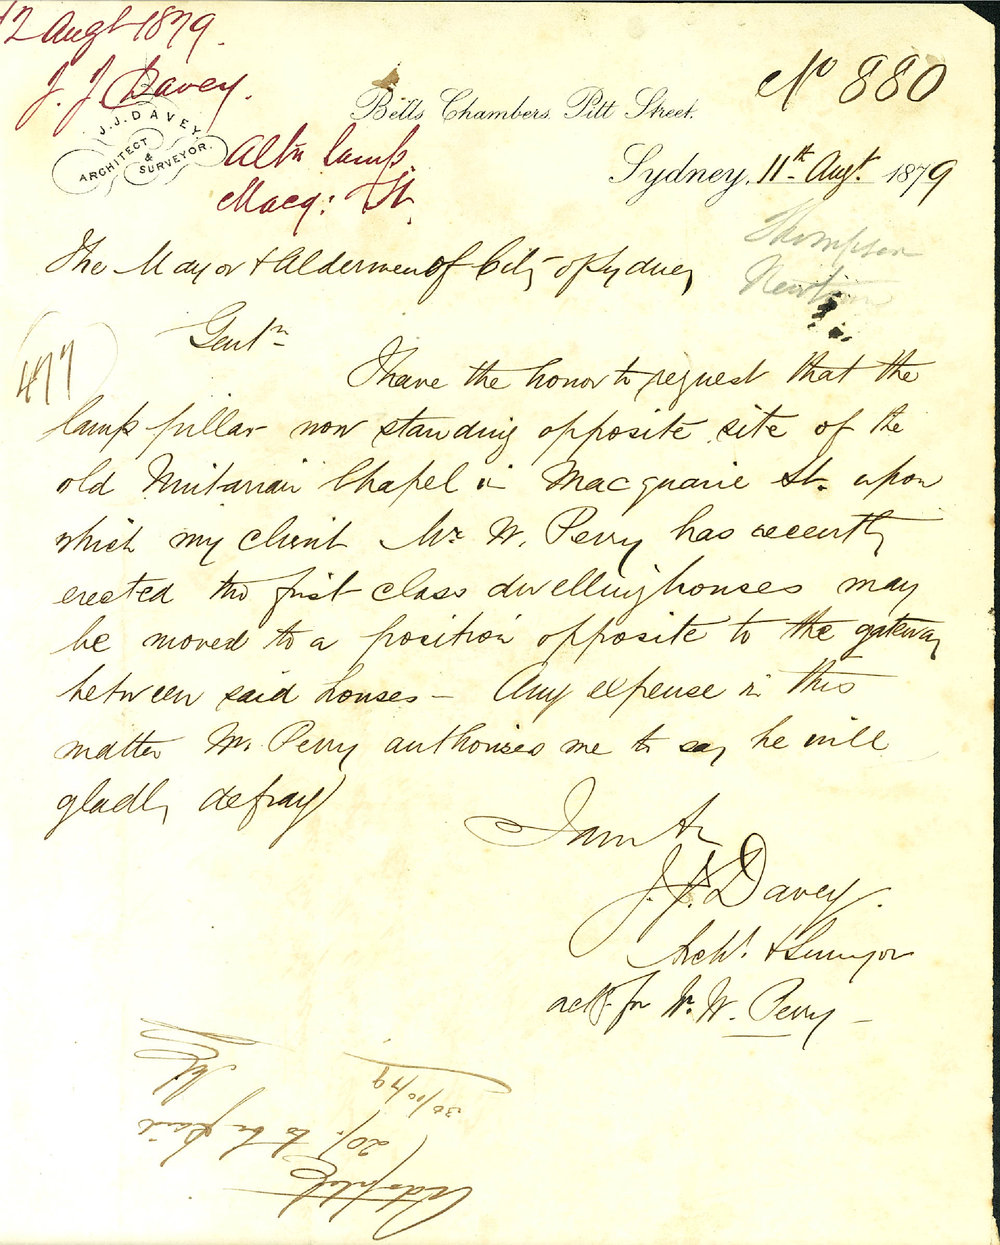 12 Augt 1879.
J. J. Davey.
J. J. DAVEY.
ARCHITECT
&
SURVEYOR.
Altn lamp.
Macq: St.
Bells Chambers, Pitt Street.
No 880
Sydney, 11th Augt. 1879
Thompson
The Mayor & Aldermen of City of Sydney
Gentn
477
I have the honor to request that the
lamp pillar now standing opposite site of the
old Unitarian Chapel in Macquarie St. upon
which my client Mr W. Perry has recently
erected two first class dwelling houses may
be moved to a position opposite to the gateway
between said houses — Any expense in this
matter Mr. Perry authorises me to say he will
gladly defray
I am &c
J. J. Davey.
Archt. & Surveyor
actg. for Mr. W. Perry —
(20/- to be paid
30/10/79